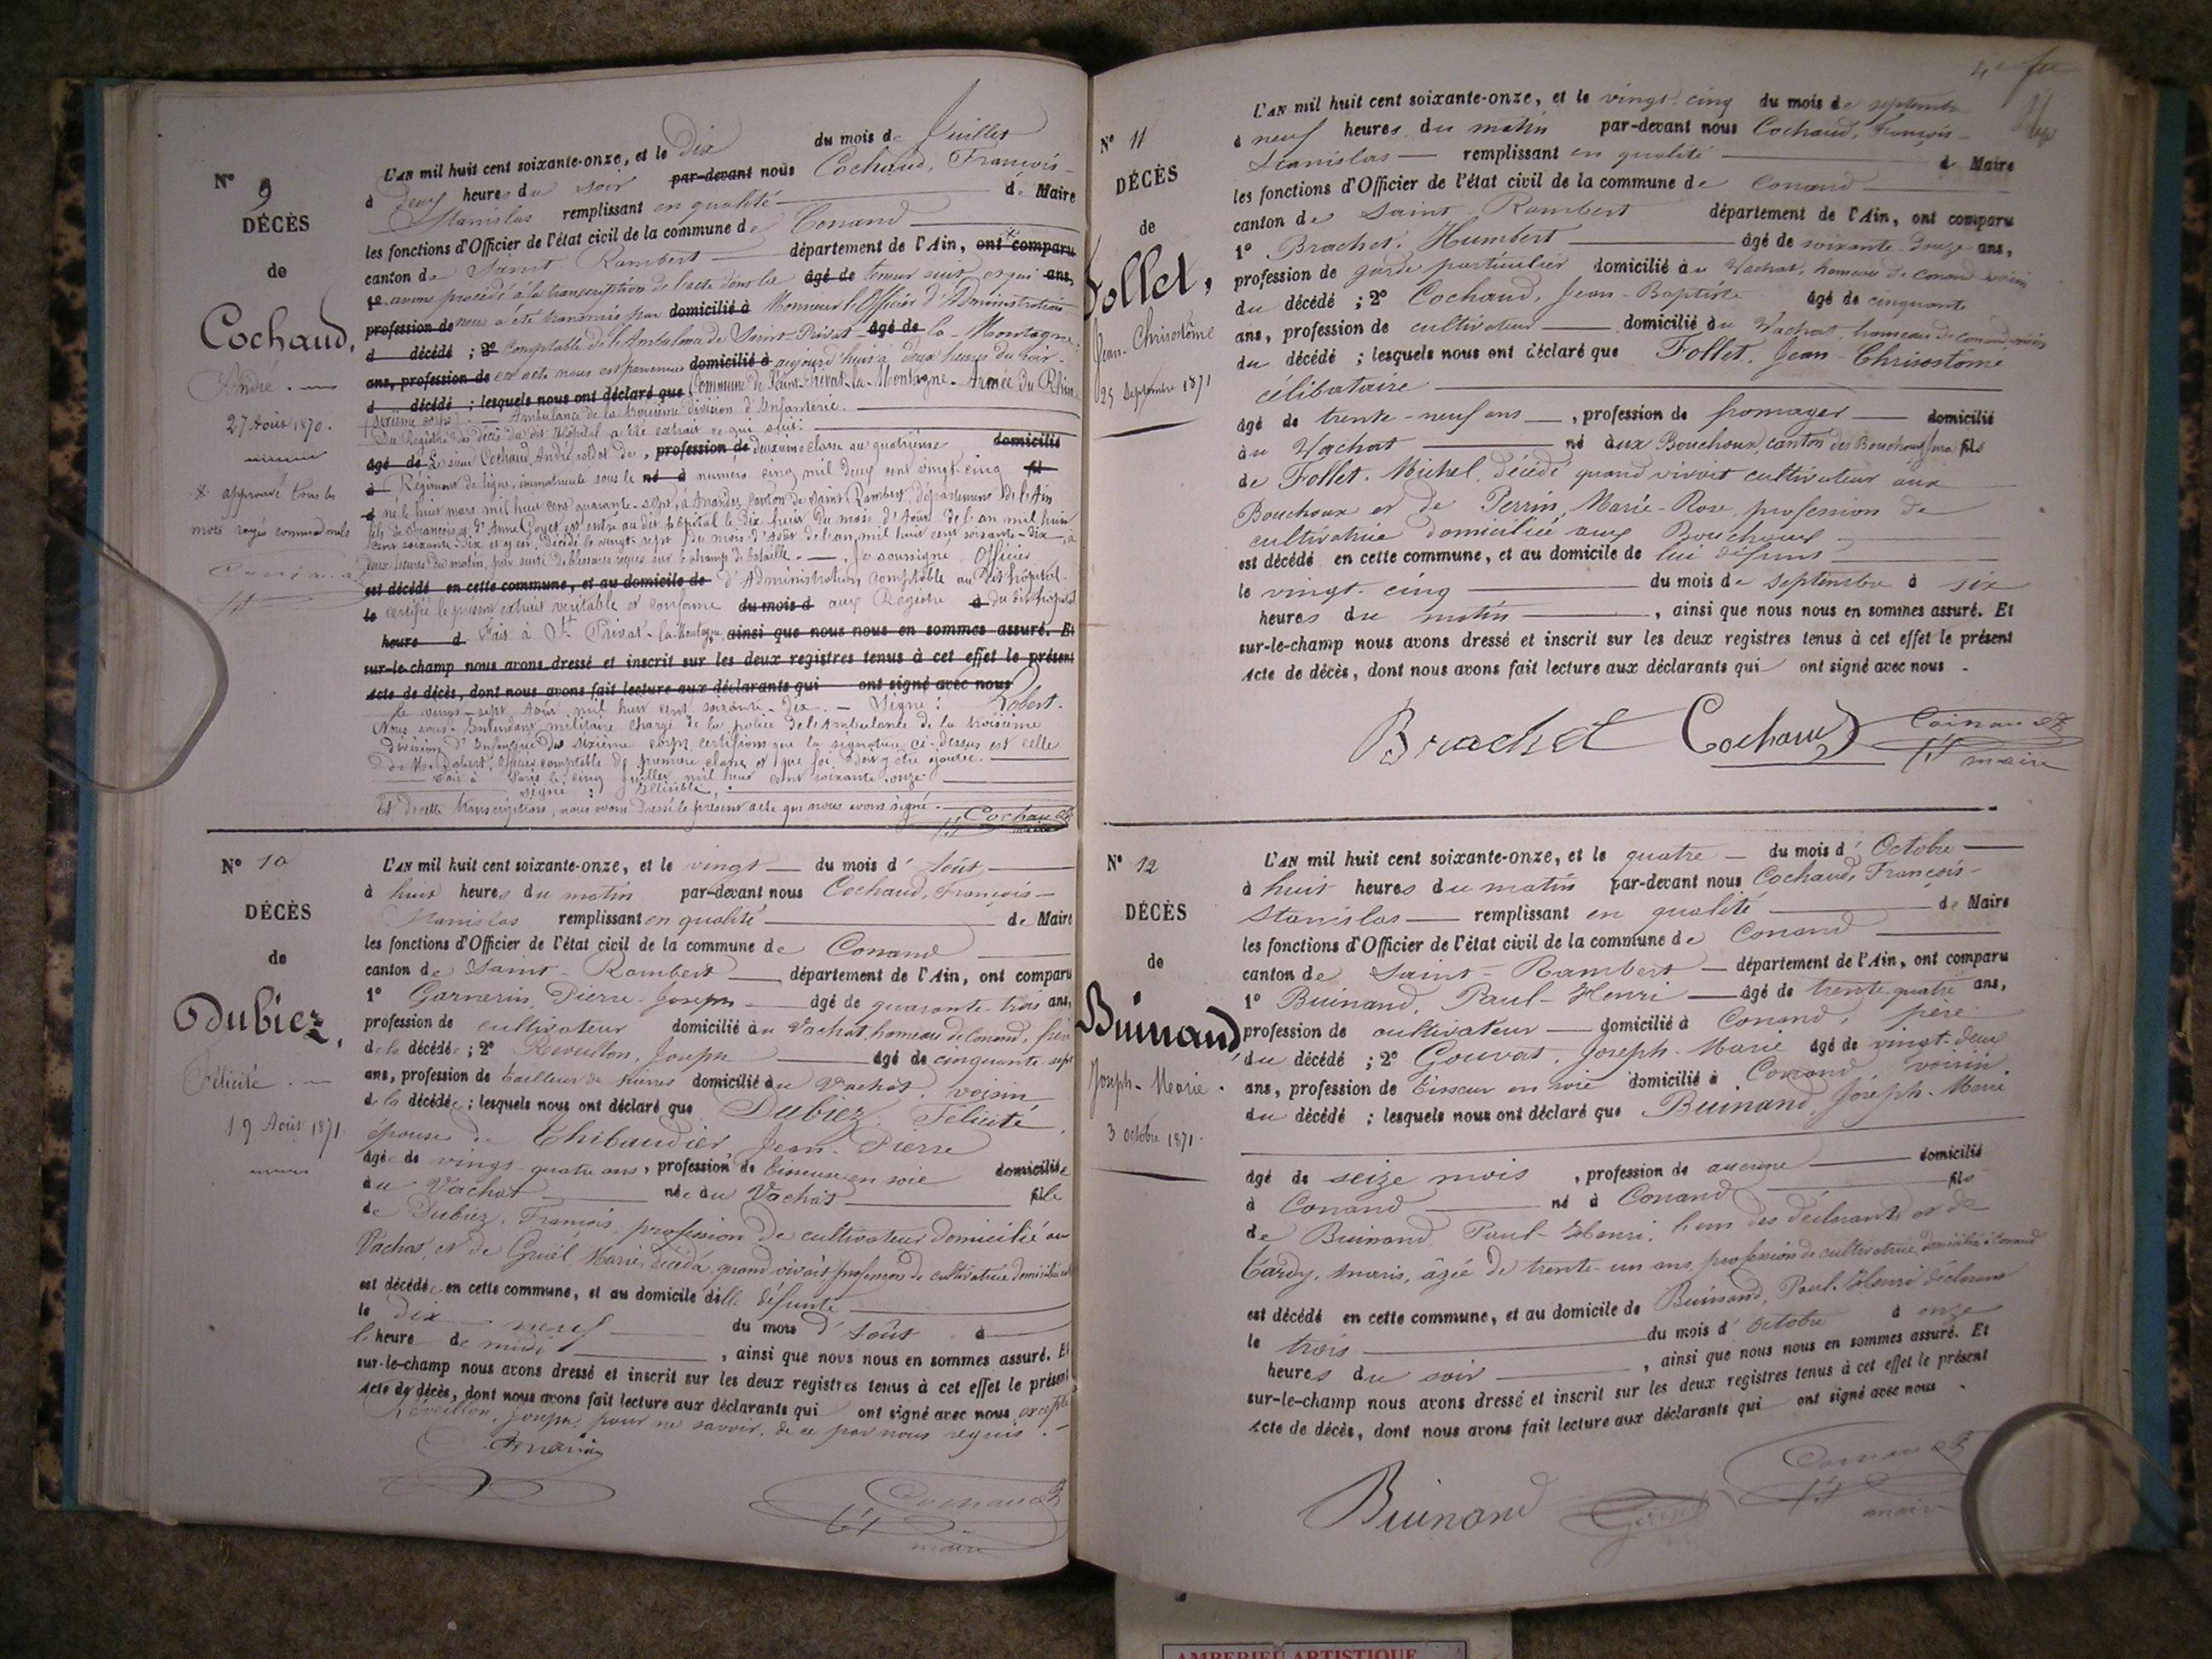 N° 9
DÉCÈS
de
Cochaud,
André.
27 Août 1870.
* approuvé tous les
mots rayés comme nuls
L'AN mil huit cent soixante-onze, et le Dix du mois de Juillet
à deux heures du soir par-devant nous Cochaud, François-
Stanislas remplissant en qualité de Maire
les fonctions d'Officier de l'état civil de la commune de Conand
canton de Saint Rambert département de l'Ain, ont comparu
1° avons procédé à la transcription de l'acte dont la âgé de teneur suit, et qui ans,
profession de nous a été transmis par domicilié à Monsieur l'Officier d'Administration
d décédé ; 2° Comptable de l'Ambulance de Saint-Privat âgé de la-Montagne;
ans, profession de cet acte nous est parvenu domicilié à aujourd'hui à deux heures du soir.
d décédé ; lesquels nous ont déclaré que Commune de Saint-Privat-la-Montagne. Armée du Rhin
(sixième corps). — Ambulance de la troisième division d'Infanterie.
Du Registre des décès du dit Hôpital a été extrait ce qui suit:
âgé de Le sieur Cochaud, André, soldat de, profession de deuxième classe au quatrième domicilié
à Régiment de ligne, immatriculé sous le né à numéro cinq mil deux cent vingt-cinq fil
d né le huit mars mil huit cent quarante-sept, à Arandas, canton de Saint Rambert, département de l'Ain
fils de François et d'Anne Goyet est entré au dit hôpital le dix huit du mois d'Août de l'an mil huit
cent soixante-dix et y est décédé le vingt-sept du mois d'Août de l'an mil huit cent soixante-dix, à
deux heures du matin, par suite de blessures reçues sur le champ de bataille. — Je soussigné Officier
est décédé en cette commune, et au domicile de d'Administration comptable au dit hôpital
le certifie le présent extrait véritable et conforme du mois d aux Registre à du dit hôpital
heure d Fait à St Privat-la-Montagne, ainsi que nous nous en sommes assuré. Et
sur-le-champ nous avons dressé et inscrit sur les deux registres tenus à cet effet le présent
Acte de décès, dont nous avons fait lecture aux déclarants qui ont signé avec nous
Le vingt-sept Août mil huit cent soixante-dix. — Signé : Robert.
Nous sous-Intendant militaire chargé de la police de l'ambulance de la troisième
division d'Infanterie du sixième corps, certifions que la signature ci-dessus est celle
de M. Robert, Officier comptable de première classe et que foi doit y être ajoutée.
Fait à Paris le cinq Juillet mil huit cent soixante-onze
signé : Illisible.
Et de cette transcription, nous avons dressé le présent acte que nous avons signé.
Cochaud
maire
N° 10
DÉCÈS
de
Dubiez,
Félicité.
19 Août 1871.
L'AN mil huit cent soixante-onze, et le vingt du mois d'Août
à huit heures du matin par-devant nous Cochaud, François-
Stanislas remplissant en qualité de Maire
les fonctions d'Officier de l'état civil de la commune de Conand
canton de Saint-Rambert département de l'Ain, ont comparu
1° Garnerin, Pierre-Joseph âgé de quarante-trois ans,
profession de cultivateur domicilié au Vachat, hameau de Conand, frère
de la décédée ; 2° Reveillon, Joseph âgé de cinquante-sept
ans, profession de tailleur de pierres domicilié au Vachat, voisin
de la décédée ; lesquels nous ont déclaré que Dubiez, Félicité,
épouse de Thibaudier, Jean-Pierre
âgée de vingt-quatre ans, profession de tisseuse en soie domiciliée
au Vachat née au Vachat fille
de Dubiez, François, profession de cultivateur domicilié au
Vachat, et de Gruël, Marie, décédé quand vivait profession de cultivatrice domiciliée au
est décédée en cette commune, et au domicile de la défunte
le dix-neuf du mois d'Août à
l'heure de midi, ainsi que nous nous en sommes assuré. Et
sur-le-champ nous avons dressé et inscrit sur les deux registres tenus à cet effet le présent
Acte de décès, dont nous avons fait lecture aux déclarants qui ont signé avec nous excepté
Réveillon, Joseph, pour ne savoir, de ce par nous requis.
maire
4e fte
N° 11
DÉCÈS
de
Follet,
Jean-Chrisostôme
25 Septembre 1871
L'AN mil huit cent soixante-onze, et le vingt-cinq du mois de septembre
à neuf heures du matin par-devant nous Cochaud, François-
Stanislas remplissant en qualité de Maire
les fonctions d'Officier de l'état civil de la commune de Conand
canton de Saint Rambert département de l'Ain, ont comparu
1° Brachet, Humbert âgé de soixante-douze ans,
profession de garde particulier domicilié au Vachat, hameau de Conand voisin
du décédé ; 2° Cochaud, Jean-Baptiste âgé de cinquante
ans, profession de cultivateur domicilié au Vachat, hameau de Conand voisin
du décédé ; lesquels nous ont déclaré que Follet, Jean-Chrisostôme
célibataire
âgé de trente-neuf ans, profession de fromager domicilié
au Vachat né aux Bouchoux, canton des Bouchoux Jura fils
de Follet, Michel, décédé quand vivait cultivateur aux
Bouchoux et de Perrin, Marie-Rose, profession de
cultivatrice domiciliée aux Bouchoux
est décédé en cette commune, et au domicile de lui défunt
le vingt-cinq du mois de septembre à six
heures du matin, ainsi que nous nous en sommes assuré. Et
sur-le-champ nous avons dressé et inscrit sur les deux registres tenus à cet effet le présent
Acte de décès, dont nous avons fait lecture aux déclarants qui ont signé avec nous.
Brachet Cochaud
maire
N° 12
DÉCÈS
de
Buinand,
Joseph-Marie.
3 octobre 1871.
L'AN mil huit cent soixante-onze, et le quatre du mois d'Octobre
à huit heures du matin par-devant nous Cochaud, François-
Stanislas remplissant en qualité de Maire
les fonctions d'Officier de l'état civil de la commune de Conand
canton de Saint-Rambert département de l'Ain, ont comparu
1° Buinand, Paul-Henri âgé de trente-quatre ans,
profession de cultivateur domicilié à Conand, père
du décédé ; 2° Gouvat, Joseph-Marie âgé de vingt-deux
ans, profession de tisseur en soie domicilié à Conand, voisin
du décédé ; lesquels nous ont déclaré que Buinand, Joseph-Marie
âgé de seize mois, profession de aucune domicilié
à Conand né à Conand fils
de Buinand Paul-Henri, l'un des déclarants et de
Tardy, Marie, âgée de trente-un ans, profession de cultivatrice, domiciliée à Conand
est décédé en cette commune, et au domicile de Buinand, Paul-Henri déclarant
le trois du mois d'octobre à onze
heures du soir, ainsi que nous nous en sommes assuré. Et
sur-le-champ nous avons dressé et inscrit sur les deux registres tenus à cet effet le présent
Acte de décès, dont nous avons fait lecture aux déclarants qui ont signé avec nous.
Buinand
maire
AMBERIEU ARTISTIQUE